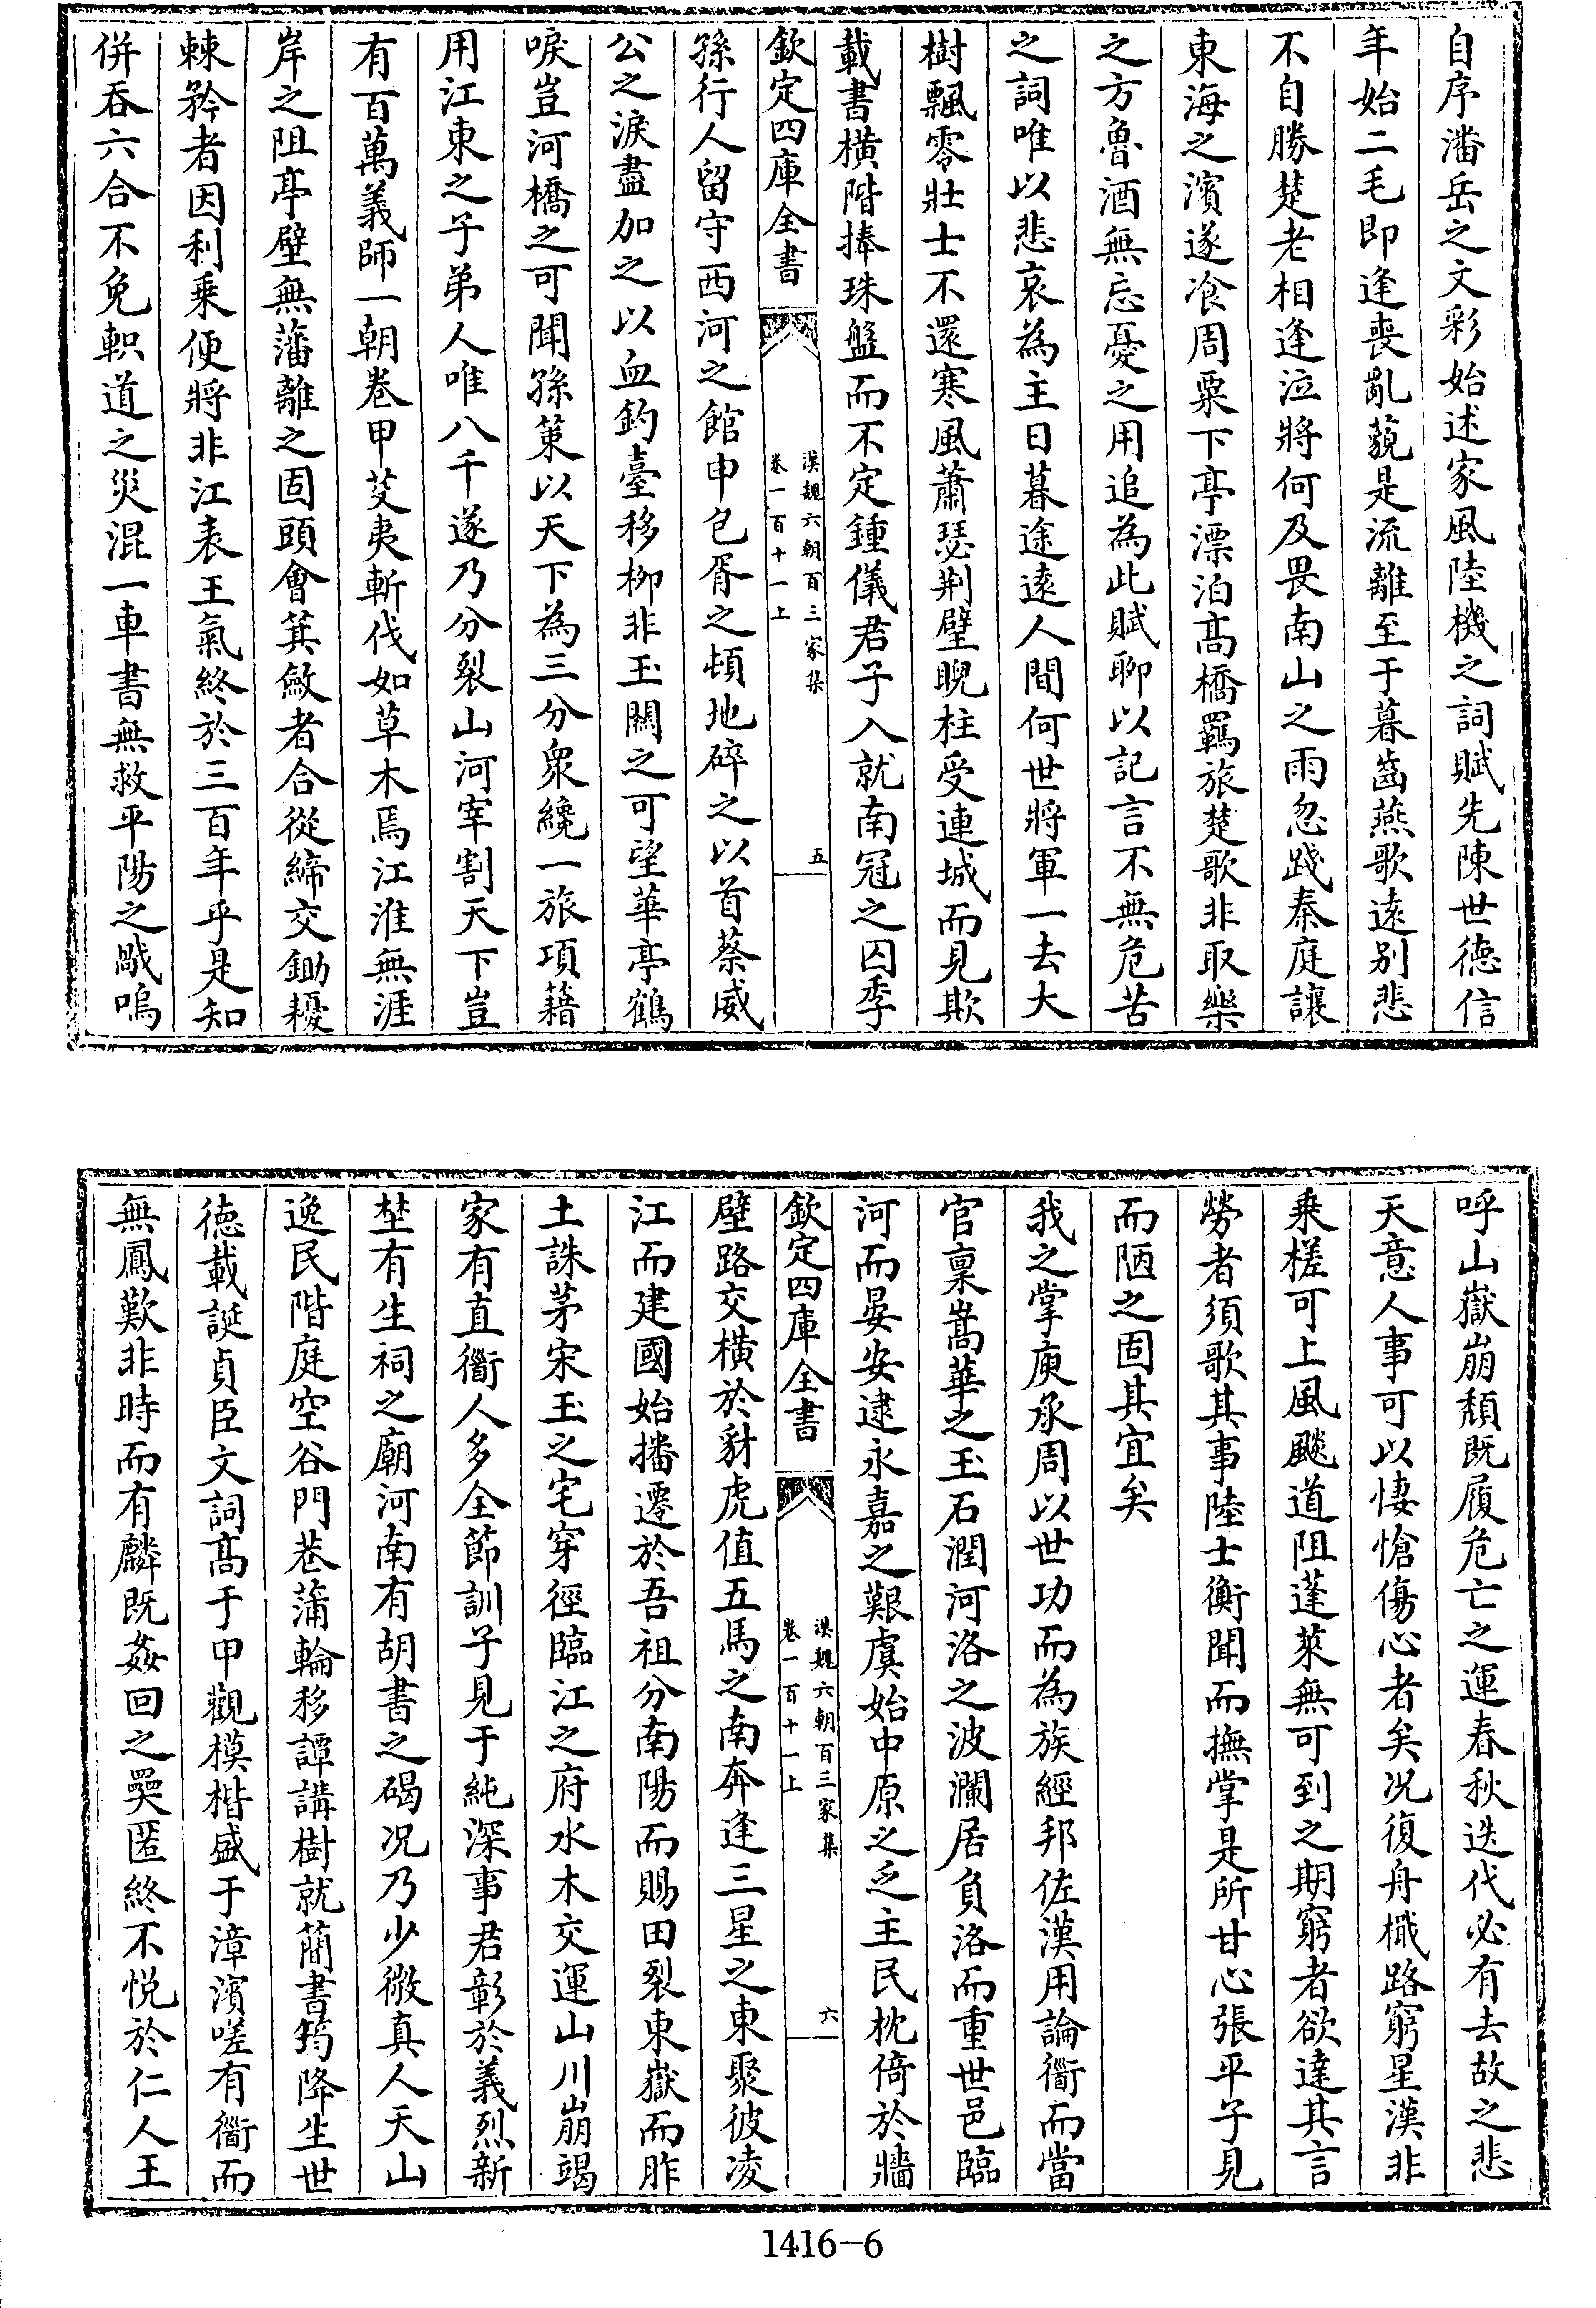 自序潘岳之文彩始述家風陸機之詞賦先陳世德信
年始二毛即逢喪亂藐是流離至于暮齒燕歌逺别悲
不自勝楚老相逢泣將何及畏南山之雨忽踐秦庭讓
東海之濱遂飡周粟下亭漂泊髙橋羈旅楚歌非取樂
之方魯酒無忘憂之用追為此賦聊以記言不無危苦
之詞唯以悲哀為主日暮途逺人間何世將軍一去大
樹飄零壯士不還寒風蕭瑟荆璧睨柱受連城而見欺
載書横階捧珠盤而不定鍾儀君子入就南冠之囚季
欽定四庫全書
漢魏六朝百三家集
卷一百十一上
五
孫行人留守西河之館申包胥之頓地碎之以首蔡威
公之淚盡加之以血釣臺移栁非玉闗之可望華亭鶴
唳豈河橋之可聞孫策以天下為三分衆纔一旅項籍
用江東之子弟人唯八千遂乃分裂山河宰割天下豈
有百萬義師一朝卷甲芟夷斬伐如草木焉江淮無涯
岸之阻亭壁無藩離之固頭會箕斂者合從締交鋤耰
棘矜者因利乗便將非江表王氣終於三百年乎是知
併吞六合不免軹道之災混一車書無救平陽之禍嗚
呼山嶽崩頽既履危亡之運春秋迭代必有去故之悲
天意人事可以悽愴傷心者矣况復舟檝路窮星漢非
乗槎可上風飈道阻蓬萊無可到之期窮者欲達其言
勞者須歌其事陸士衡聞而撫掌是所甘心張平子見
而陋之固其宜矣
我之掌庾承周以世功而為族經邦佐漢用論衟而當
官稟嵩華之玉石潤河洛之波瀾居負洛而重世邑臨
河而晏安逮永嘉之艱虞始中原之乏主民枕倚於牆
欽定四庫全書
漢魏六朝百三家集
卷一百十一上
六
壁路交横於豺虎值五馬之南奔逢三星之東聚彼凌
江而建國始播遷於吾祖分南陽而賜田裂東嶽而胙
土誅茅宋玉之宅穿徑臨江之府水木交運山川崩竭
家有直衟人多全節訓子見于純深事君彰於義烈新
埜有生祠之廟河南有胡書之碣况乃少微真人天山
逸民階庭空谷門巷蒲輪移譚講樹就簡書筠降生世
德載誕貞臣文詞髙于甲觀模楷盛于漳濱嗟有衟而
無鳳歎非時而有麟既姦回之奰匿終不悦於仁人王
1416-6